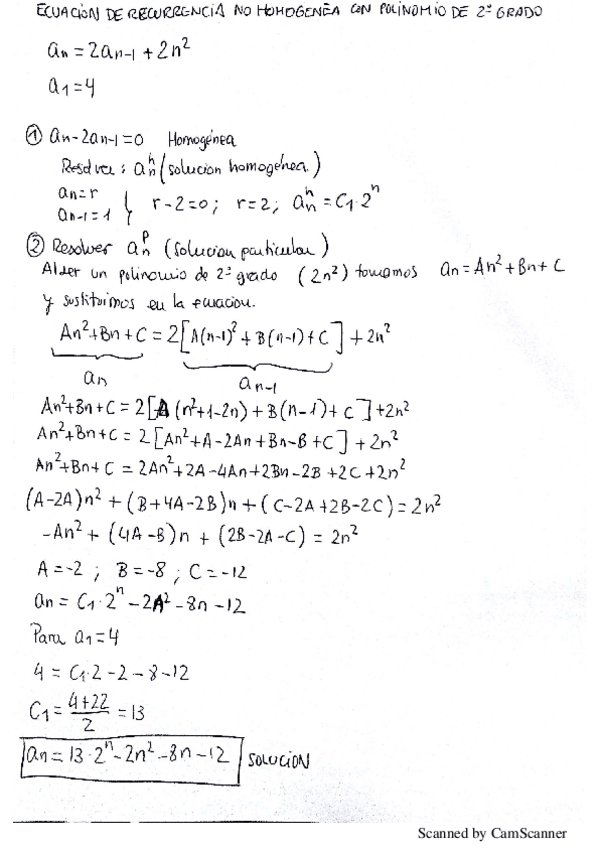 ECUACIÓN DE RECURRENCIA NO HOMOGENEA CON POLINOMIO DE 2º GRADO
an = 2an-1 + 2n²
a1 = 4
① an - 2an-1 = 0 Homogénea
Resolver : aₙʰ (solucion homogénea.)
an = r
an-1 = 1 } r-2=0; r=2; aₙʰ = C1·2ⁿ
② Resolver aₙᵖ (solucion particular)
Al ser un polinomio de 2º grado (2n²) tomamos an = An² + Bn + C
y sustituimos en la ecuacion.
An² + Bn + C = 2[A(n-1)² + B(n-1) + C] + 2n²
an an-1
An² + Bn + C = 2[A(n²+1-2n) + B(n-1) + C] + 2n²
An² + Bn + C = 2[An² + A - 2An + Bn - B + C] + 2n²
An² + Bn + C = 2An² + 2A - 4An + 2Bn - 2B + 2C + 2n²
(A-2A)n² + (B+4A-2B)n + (C-2A+2B-2C) = 2n²
-An² + (4A-B)n + (2B-2A-C) = 2n²
A = -2 ; B = -8 ; C = -12
an = C1·2ⁿ - 2A² - 8n - 12
Para a1 = 4
4 = C1·2 - 2 - 8 - 12
C1 = (4+22)/2 = 13
an = 13·2ⁿ - 2n² - 8n - 12 SOLUCION
Scanned by CamScanner